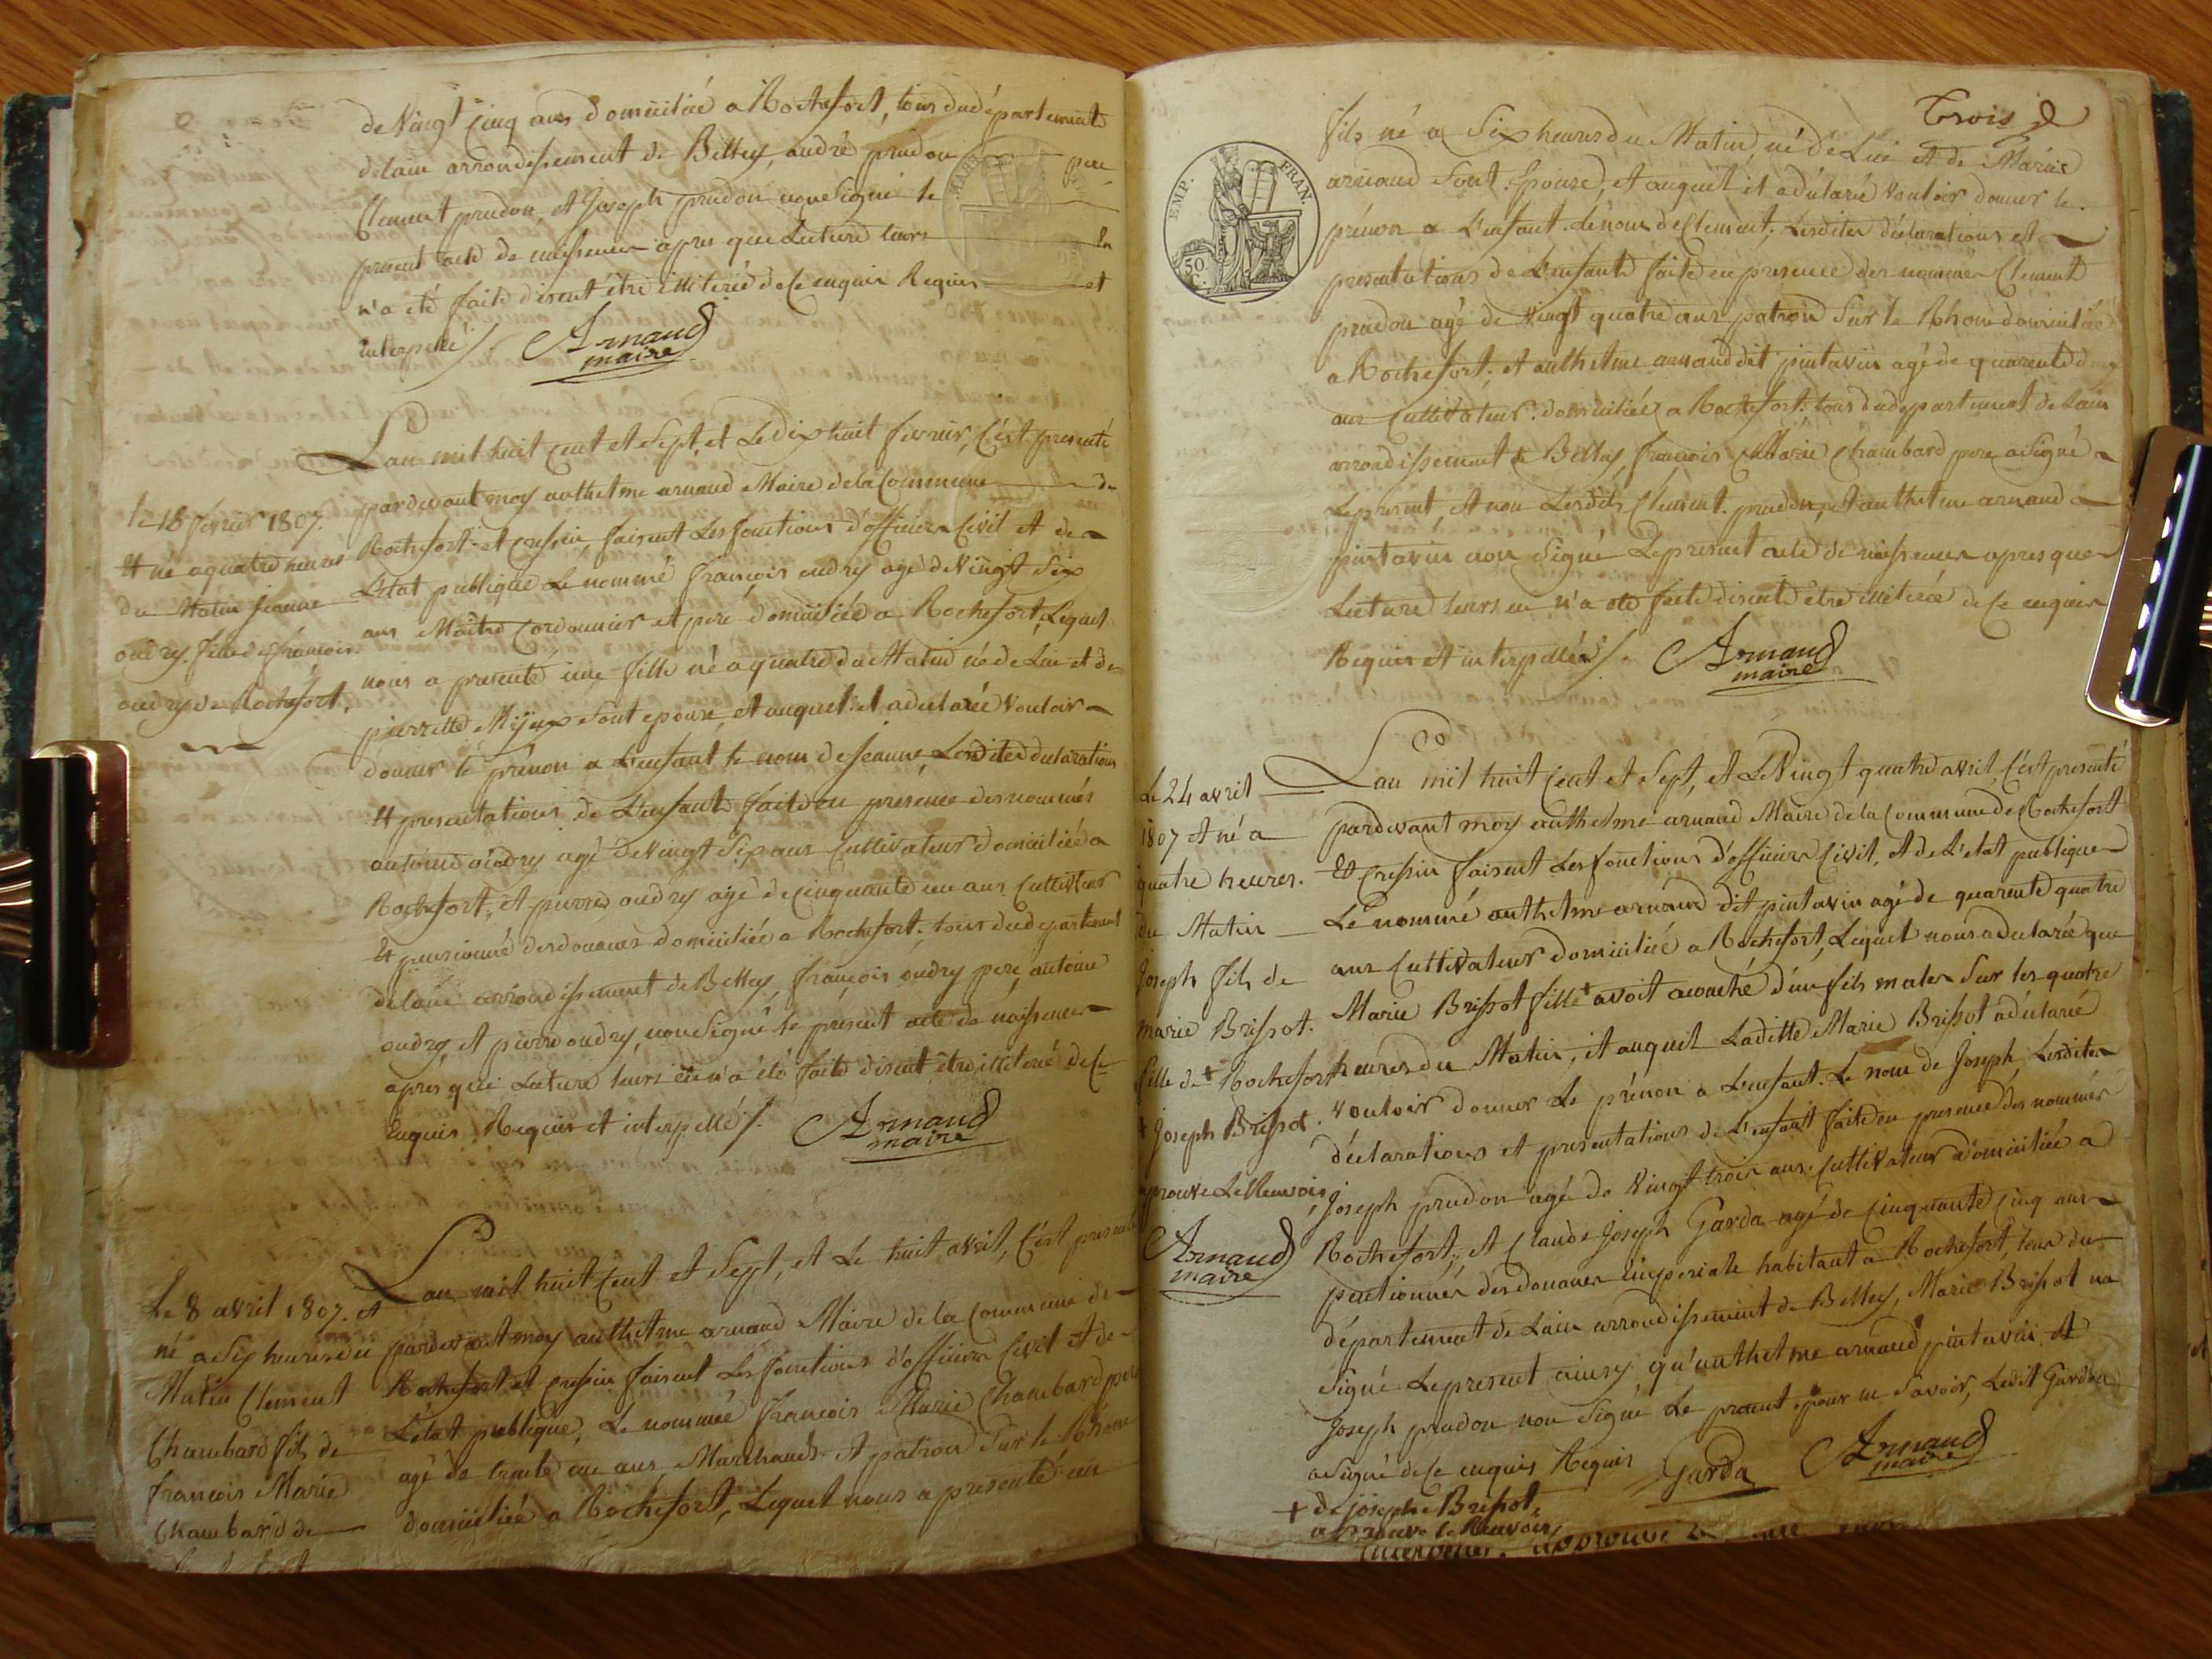 de Vingt Cinq ans domiciliée a Rochefort, tous dudépartement
delain arrondissement de Belley, andré prudon pere
Clement prudon, et Joseph prudon nonsigné le
present acte de naissence apres que Lecture leurs En
n'a été faite disent être illiterée de Ce enquis Requis et
interpellé /.
Arnaud
maire
Lan mil huit Cent et Sept, et Le Dix huit fevrier, C'est presenté
pardevant moy anthelme arnaud Maire dela Commune de
Rochefort et Cressin faisent Les fonctions d'officiers Civil et de
L'état publique Le nommé françois oudry agé deVingt Six
ans Maître Cordonnier et pere domiciliée a Rochefort, Lequel
nous a presenté une fille né a quatre du Matin né de Lui et de
pierrette Mijeux Sont epouse, et auquel il a declarée Vouloir
donner le prénon a L'enfant le nom de Jeanne, Lesdites declarations
et presentations de L'enfant faite en presence des nommés
antoine oudry agé deVingt Six ans Cultivateur domiciliée a
Rochefort, et pierre oudry agé de Cinquante un ans Cultivteur
et pensionné des douanes domiciliée a Rochefort, tous dudepartement
delain arrondissement de Belley, françois oudry pere, antoine
oudry, et pierre oudry, nonSigné le présent acte de naissence
après que Lecture leurs en n'a été faite disent être illiterée de Ce
enquis Requis et interpellé /.
Arnaud
maire
18 fevrier 1807.
Et né a quatre heures
du Matin Jeanne
oudry. fille de françois
oudry de Rochefort.
Lan mil huit Cent et Sept, et Le huit avril, C'est presenté
pardevant moy anthelme arnaud Maire de la Commune de
Rochefort et Cressin faisent Les fonctions d'officiers Civil et de
L'état publique, Le nommée françois Marie Chambard pere
agé de trente un ans Marchands et patron Sur le Rhone
domiciliée a Rochefort, Lequel nous a presenté un
Le 8 avril 1807. et
né a Six heures du
Matin Clement
Chambard fils de
françois Marie
Chambard de
Trois
EMP. FRAN.
50 C.
fils né a Six heures du Matin, né de Lui et de Marie
arnaud Sont Epouse, et auquel il a déclarée Vouloir donner le
prénon a L'enfant. Le nom de Clement; Lesdites déclarations et
presentations de L'enfant faite en presence des nommés Clement
prudon agé de Vingt quatre ans patron Sur le Rhone domiciliée
a Rochefort, et anthelme arnaud dit pintavin agé de quarente deux
ans Cultivateur domiciliée a Rochefort. tous dudepartement de Lain
arrondissement de Belley, françois Marie Chambard pere a Signé
Le present, et non Lesdits Clement prudon, et anthelme arnaud
pintavin non Signé Le present acte de naissence apres que
Lecture leurs en n'a été faite disent être illiterée de Ce enquis
Requis et interpellée /.
Arnaud
maire
Lan mil huit Cent et Sept, et LeVingt quatre avril, C'est presenté
pardevant moy anthelme arnaud Maire de la Commune de Rochefort
et Cressin faisent Les fonctions d'officiers Civil, et de L'état publique
Le nommé anthelme arnaud dit pintavin agé de quarente quatre
ans Cultivateur domiciliée a Rochefort, Lequel nous a declarée que
Marie Brissot fille + avoit acouché d'un fils males Sur les quatre
heures du Matin, et auquel Laditte Marie Brissot a déclarée
Vouloir donner Le prénon a L'enfant. Le nom de Joseph, Lesdites
déclarations et presentations de L'enfant faite en presence des nommés
Joseph prudon agé de Vingt trois ans. Cultivateur domiciliée a
Rochefort; et Claude Joseph Garda agé de Cinquante Cinq ans
pentionnés des douanes imperiale habitant a Rochefort, tous du
département de Lain arrondissement de Belley, Marie Brissot na
Signé Le present ainsy qu'anthelme arnaud pintavin et
Joseph prudon non Signé Le present pour ne Savoir, Ledit Garda
a Signé de Ce enquis Requis
Garda
Arnaud
maire
+ de joseph Brissot,
aprouve le Renvois
Le 24 avril
1807 et né a
quatre heures.
du Matin
Joseph fils de
marie Brissot.
fille de + Rochefort
+ Joseph Brissot.
aprouve LeRenvois
Arnaud
maire